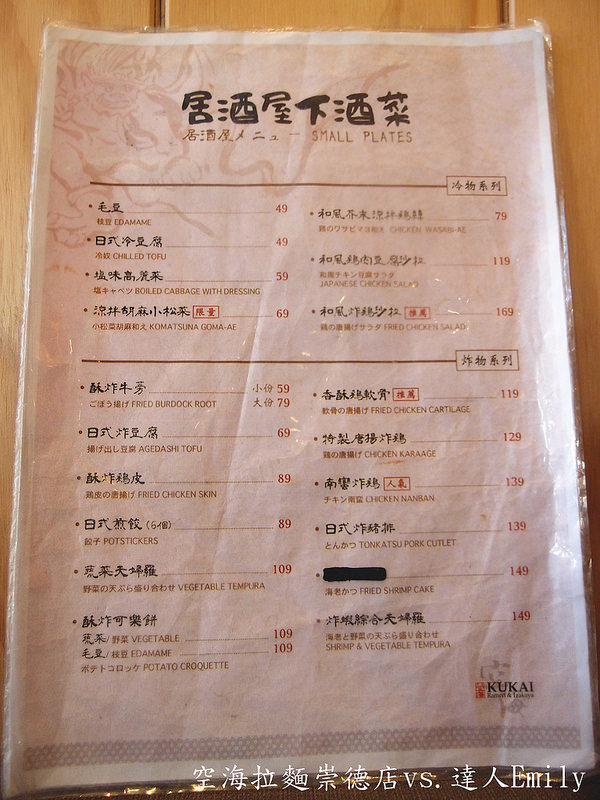 居酒屋下酒菜
居酒屋メニュー SMALL PLATES
冷物系列
毛豆 49
枝豆 EDAMAME
日式冷豆腐 49
冷奴 CHILLED TOFU
塩味高麗菜 59
塩キャベツ BOILED CABBAGE WITH DRESSING
涼拌胡麻小松菜 限量 69
小松菜胡麻和え KOMATSUNA GOMA-AE
和風芥末涼拌鶏絲 79
鶏のワサビマヨ和え CHICKEN WASABI-AE
和風鶏肉豆腐沙拉 119
和風チキン豆腐サラダ
JAPANESE CHICKEN SALAD
和風炸鶏沙拉 推薦 169
鶏の唐揚げサラダ FRIED CHICKEN SALAD
炸物系列
酥炸牛蒡 小份 59
ごぼう揚げ FRIED BURDOCK ROOT 大份 79
日式炸豆腐 69
揚げ出し豆腐 AGEDASHI TOFU
酥炸鶏皮 89
鶏皮の唐揚げ FRIED CHICKEN SKIN
日式煎餃 (6個) 89
餃子 POTSTICKERS
蔬菜天婦羅 109
野菜の天ぷら盛り合わせ VEGETABLE TEMPURA
酥炸可樂餅
蔬菜/ 野菜 VEGETABLE 109
毛豆/ 枝豆 EDAMAME 109
ポテトコロッケ POTATO CROQUETTE
香酥鶏軟骨 推薦 119
軟骨の唐揚げ FRIED CHICKEN CARTILAGE
特製唐揚炸鶏 129
鶏の唐揚げ CHICKEN KARAAGE
南蠻炸鶏 人氣 139
チキン南蛮 CHICKEN NANBAN
日式炸豬排 139
とんかつ TONKATSU PORK CUTLET
149
海老かつ FRIED SHRIMP CAKE
炸蝦綜合天婦羅 149
海老と野菜の天ぷら盛り合わせ
SHRIMP & VEGETABLE TEMPURA
KUKAI
Ramen & Izakaya
空海拉麵崇德店vs.達人Emily